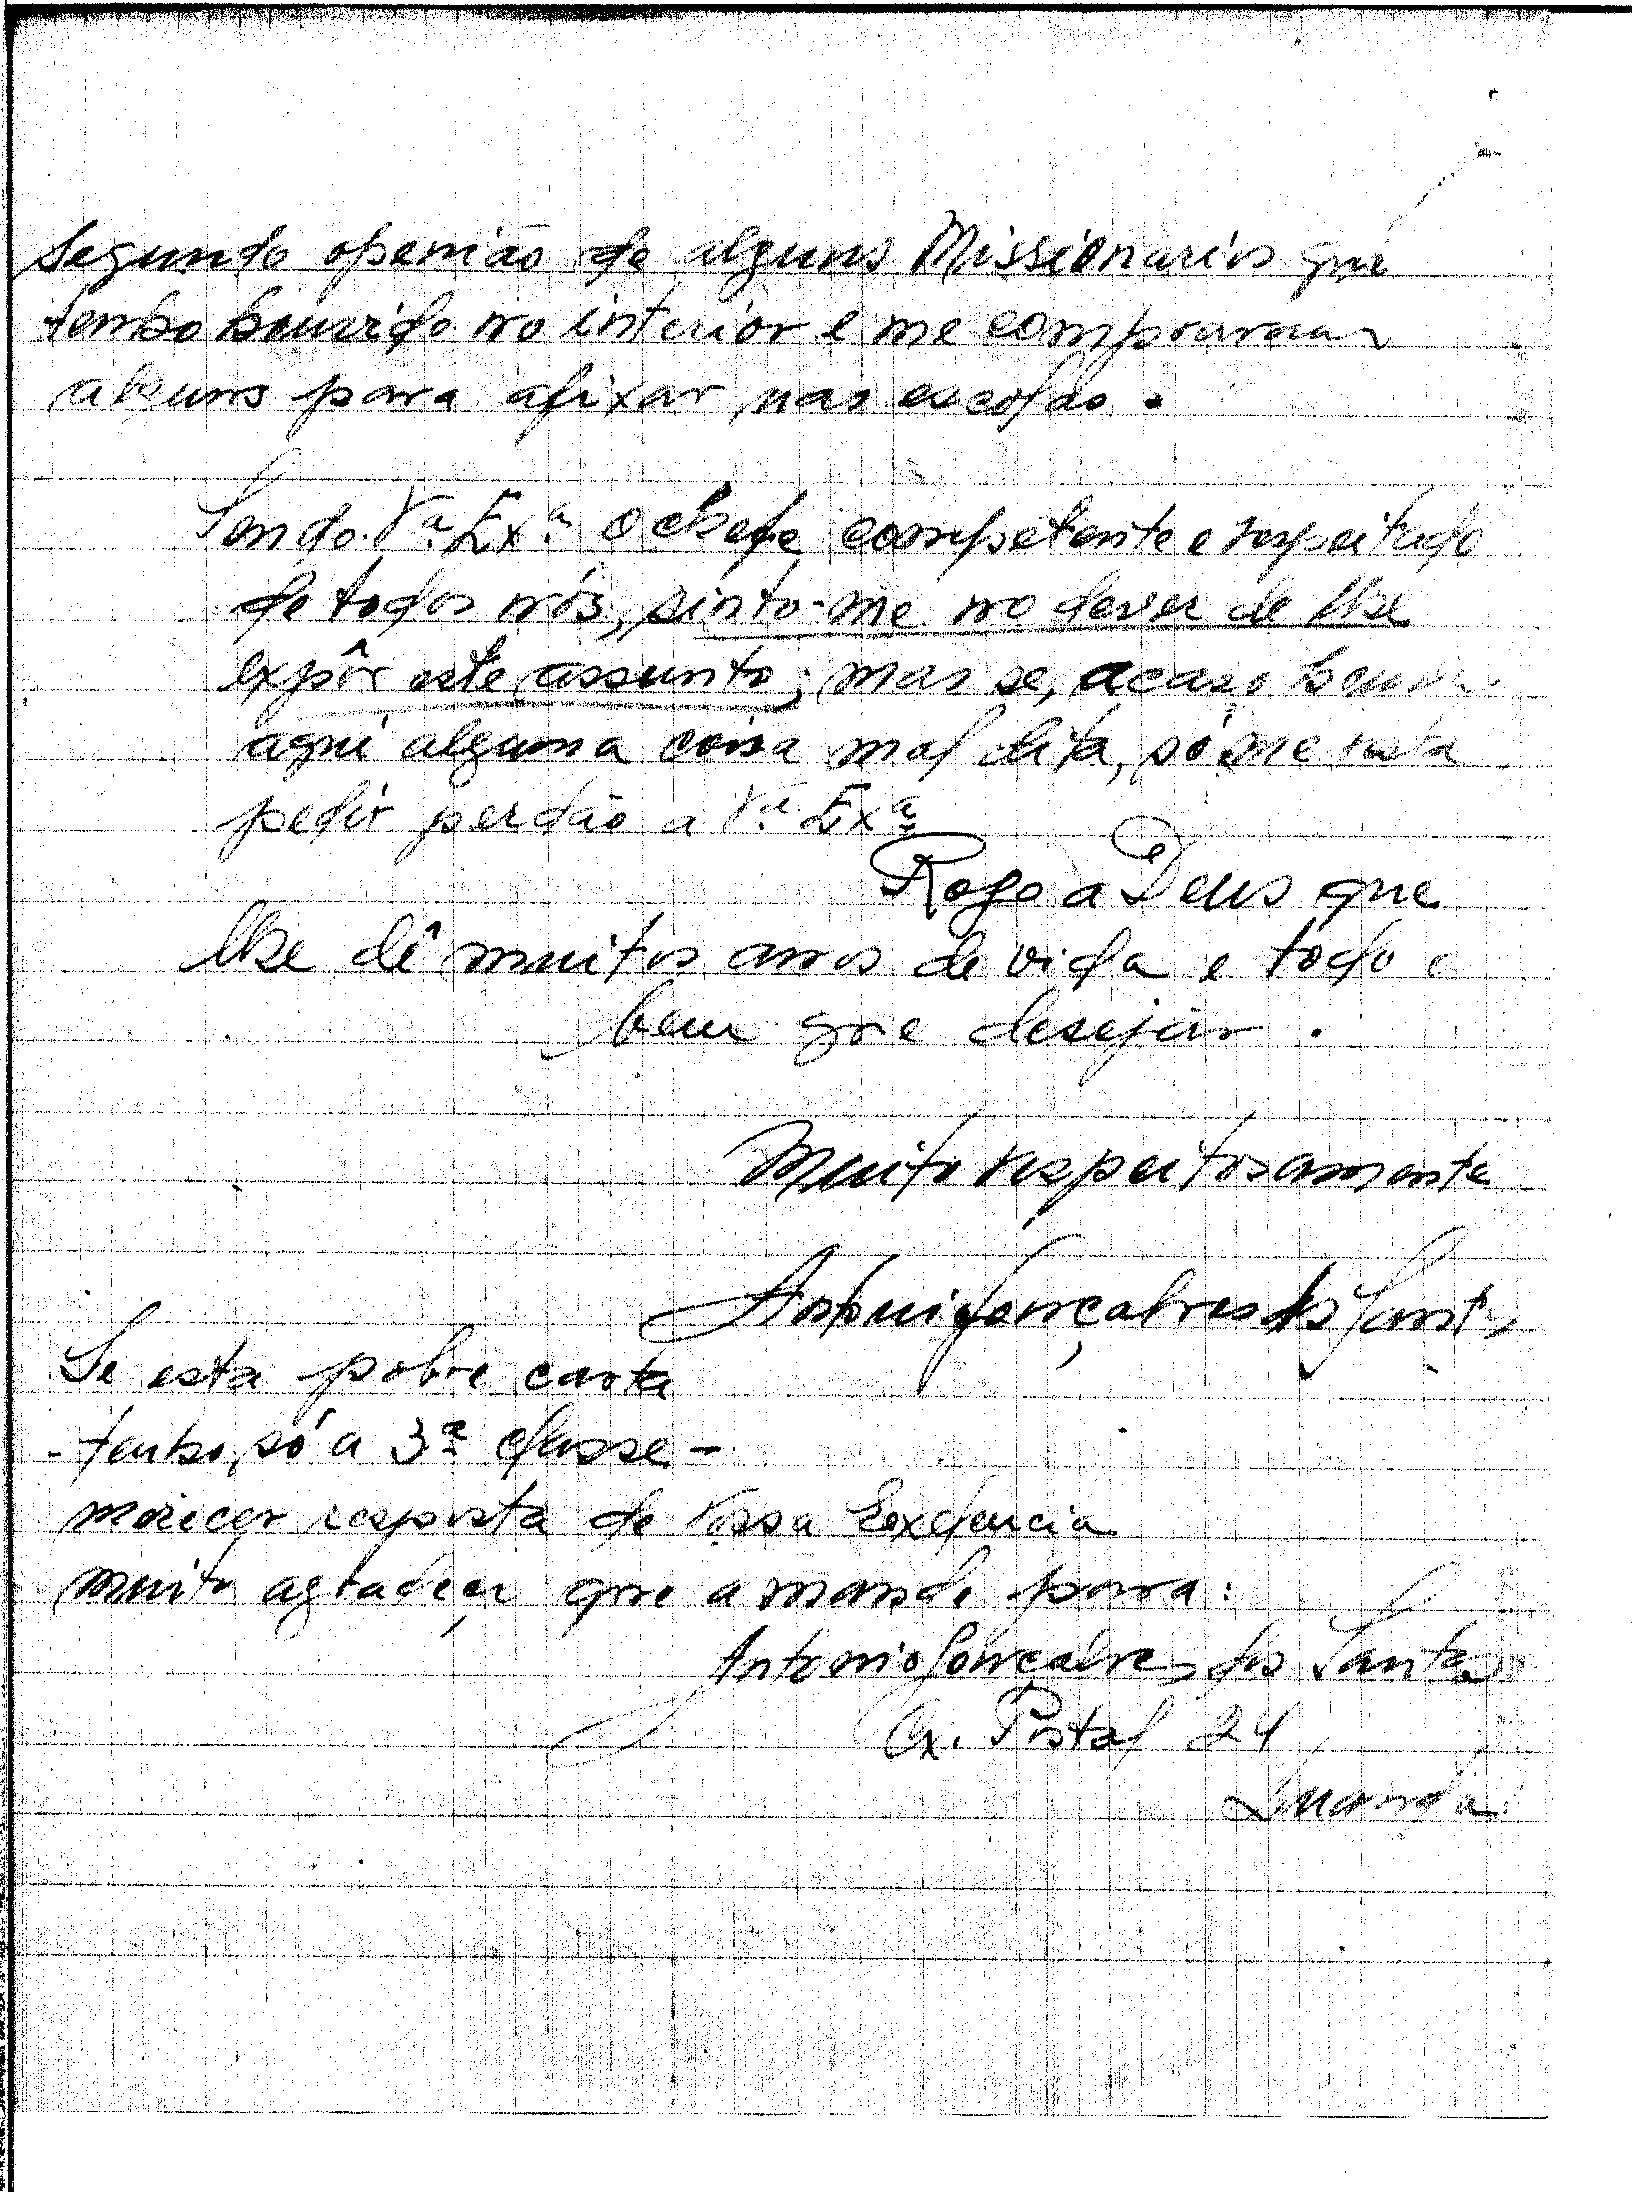 segundo openião de alguns Missionarios que
tenho houvido no interior e me compraram
alguns para afixar nas escolas.
Sendo Vª. Exª. o chefe competente e respeitado
de todos nós, sinto-me no dever de lhe
expôr este assunto; mas se, acaso houver
aqui alguma coisa mal dita, só me resta
pedir perdão a Vª. Exª.
Rogo a Deus que
lhe dê muitos anos de vida e todo o
bem que desejar.
Muito respeitosamente
Antonio Gonçalves dos Santos
Se esta pobre carta
- tenho, só a 3ª classe -
merecer resposta de Vossa Exelencia
muito agradeça que a mande para:
Antonio Gonçalves dos Santos
Cx. Postal 24
Luanda